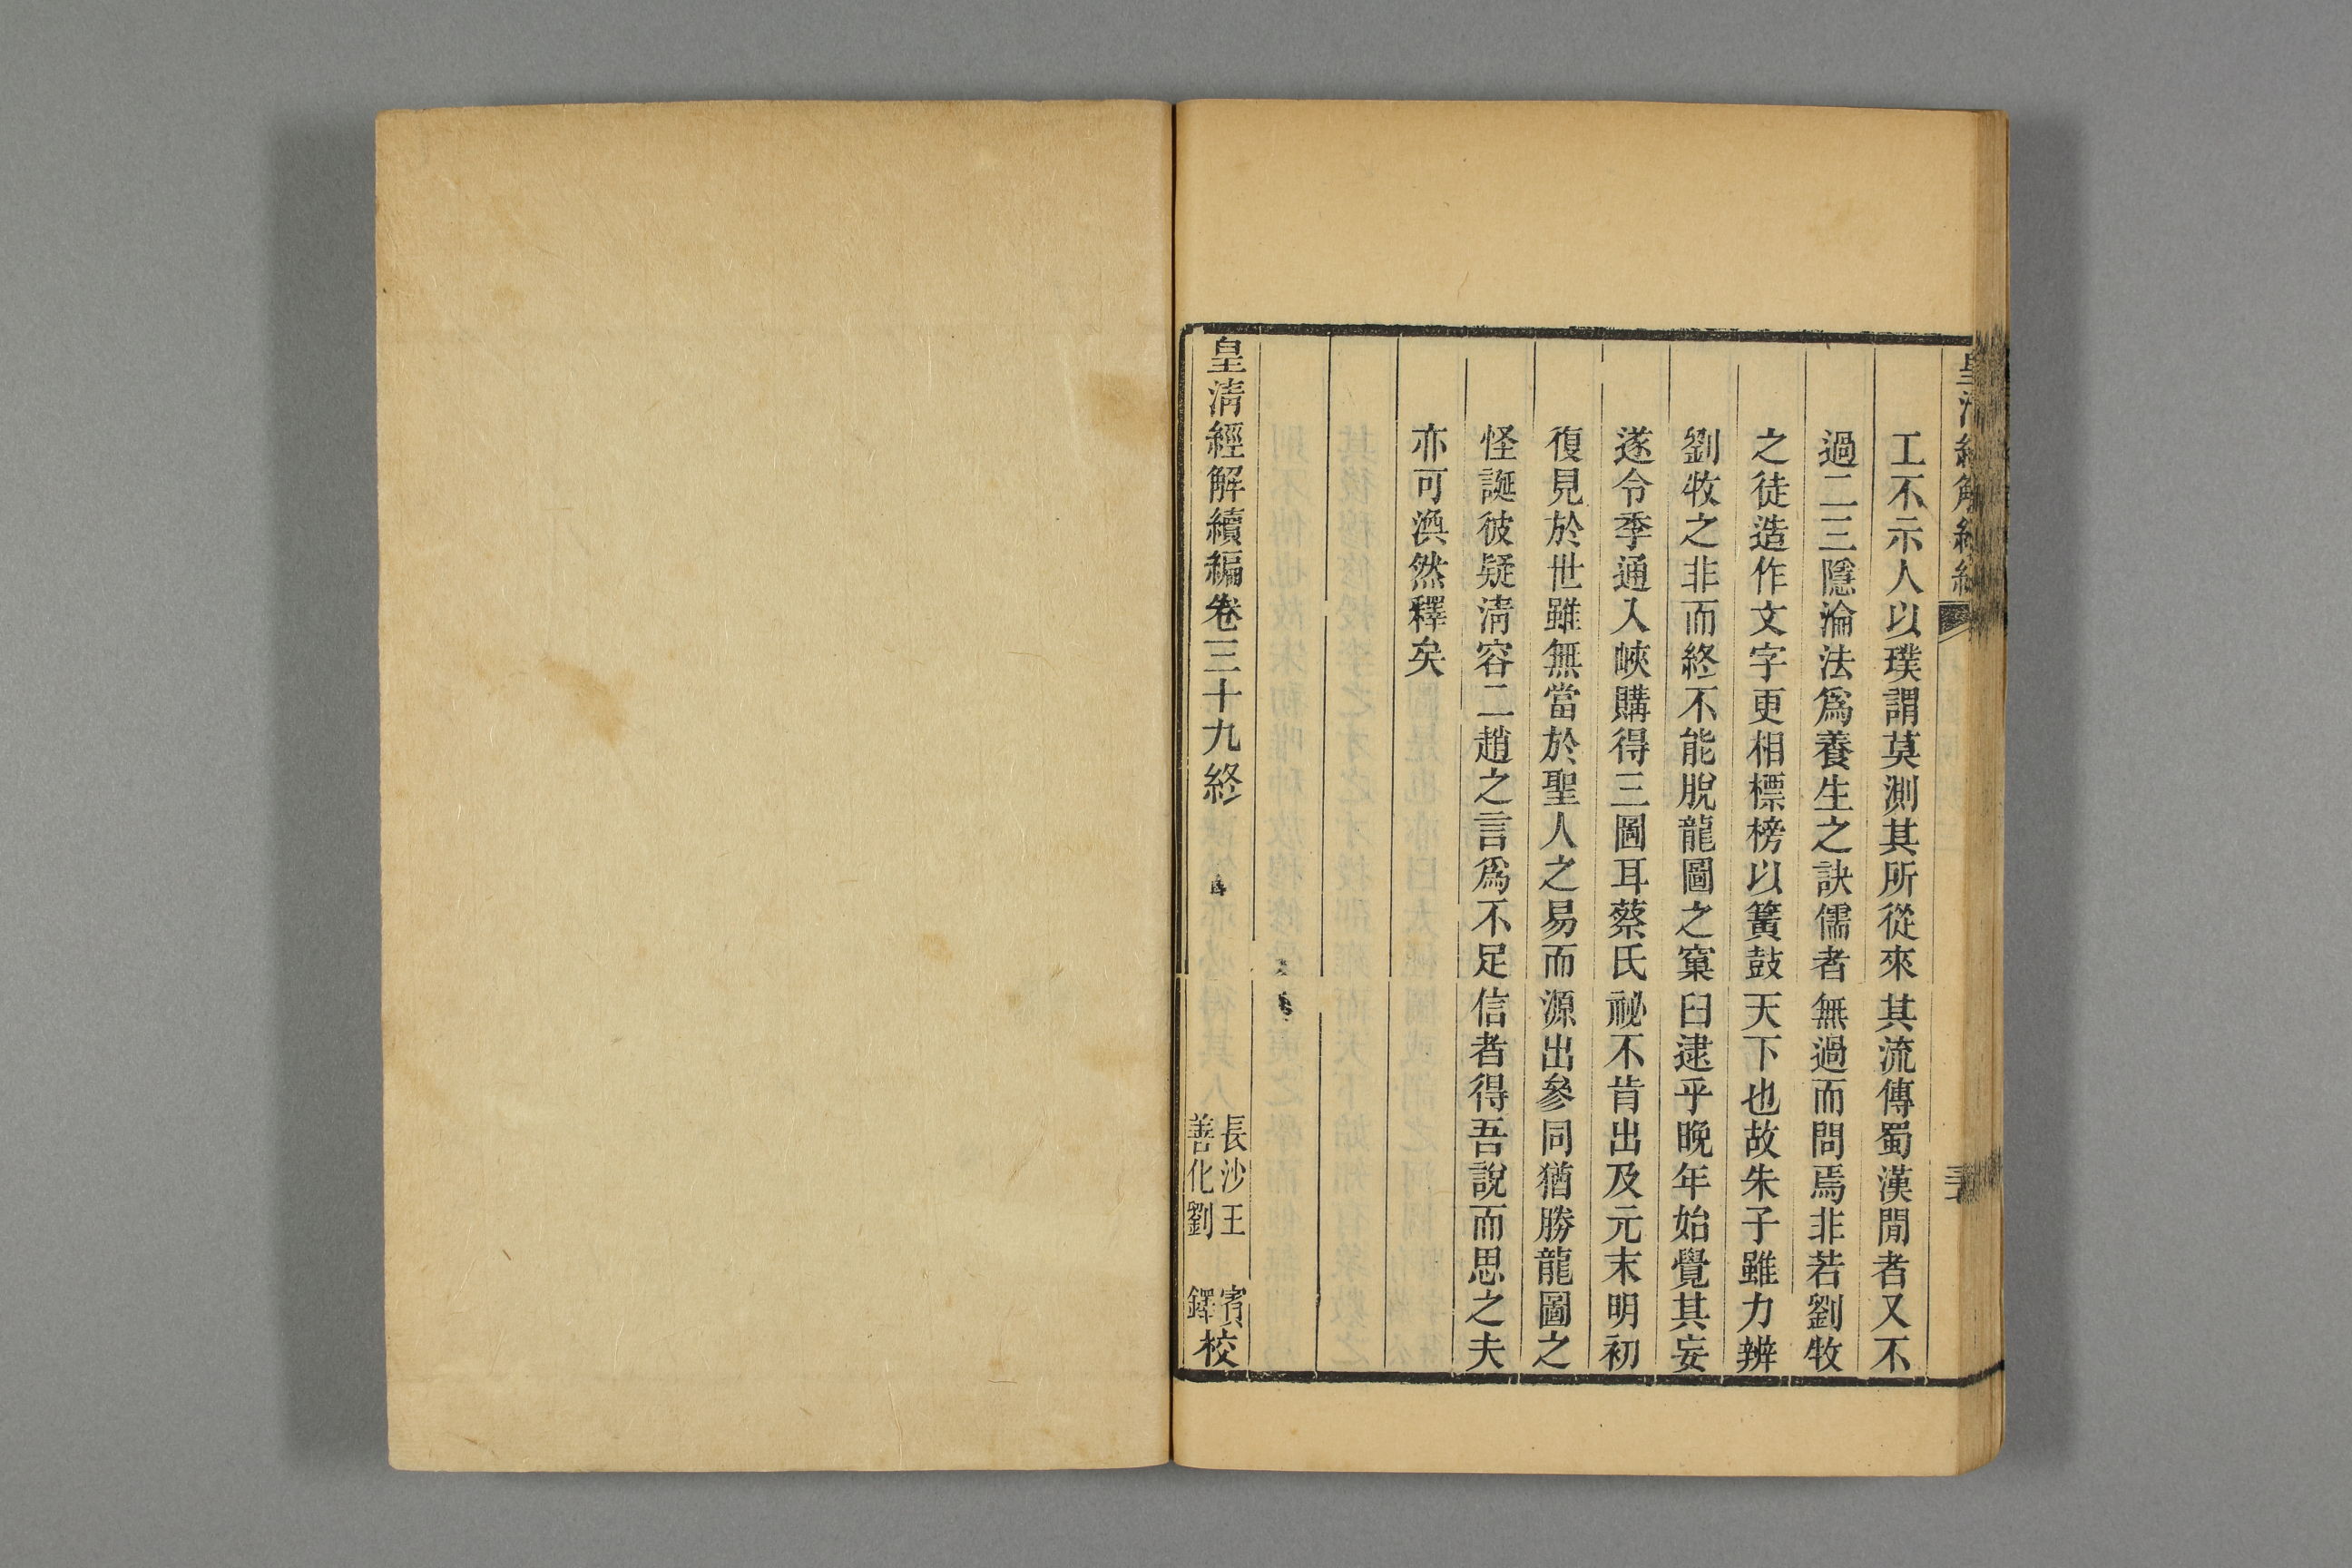 皇清經解續編
工不示人以璞謂莫測其所從來其流傳蜀漢閒者又不
過二三隱淪法爲養生之訣儒者無過而問焉非若劉牧
之徒造作文字更相標榜以簧鼓天下也故朱子雖力辨
劉牧之非而終不能脫龍圖之窠臼逮乎晚年始覺其妄
遂令季通入峽購得三圖耳蔡氏祕不肯出及元末明初
復見於世雖無當於聖人之易而源出參同猶勝龍圖之
怪誕彼疑淸容二趙之言爲不足信者得吾說而思之夫
亦可渙然釋矣
皇淸經解續編卷三十九終
長沙王 賓
善化劉 鐸
校